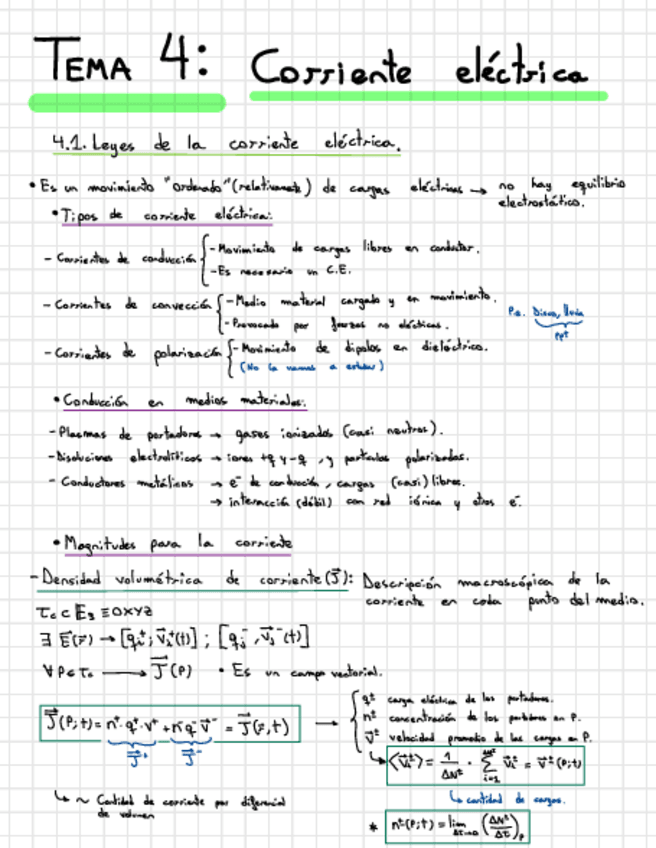 TEMA 4: Corriente eléctrica
4.1. Leyes de la corriente eléctrica.
• Es un movimiento "ordenado" (relativamente) de cargas eléctricas → no hay equilibrio
electrostático.
• Tipos de corriente eléctrica:
- Corrientes de conducción { - Movimiento de cargas libres en conductor.
- Es necesario un C.E.
- Corrientes de convección { - Medio material cargado y en movimiento.
- Provocado por fuerzas no eléctricas.
P.e. Disco, lluvia
ppt
- Corrientes de polarización { - Movimiento de dipolos en dieléctrico.
(No la vamos a estudiar)
• Conducción en medios materiales:
- Plasmas de portadores → gases ionizados (casi neutros).
- Disoluciones electrolíticas → iones +q y -q, y partículas polarizadas.
- Conductores metálicos → e⁻ de conducción, cargas (casi) libres.
→ interacción (débil) con red iónica y otros e⁻.
• Magnitudes para la corriente
- Densidad volumétrica de corriente (J⃗): Descripción macroscópica de la
corriente en cada punto del medio.
τc ⊂ E₃ ≡ OXYZ
∃ E⃗(r⃗) → [qᵢ⁺; v⃗ᵢ⁺(t)] ; [qⱼ⁻, v⃗ⱼ⁻(t)]
∀ P ∈ τc ⟶ J⃗(P) • Es un campo vectorial.
J⃗(P;t) = n⁺·q⁺·v⁺ + n⁻q⁻v⃗⁻ = J⃗(r⃗,t) →
J⃗⁺ J⃗⁻
{ q± carga eléctrica de los portadores.
n± concentración de los portadores en P.
v⃗± velocidad promedio de las cargas en P.
↳ <v⃗ᵢ±> = 1/ΔN± · Σ v⃗ᵢ± = v⃗±(P;t)
↳ cantidad de cargas.
↳ ~ Cantidad de corriente por diferencial
de volumen
* n±(P;t) = lim Δτ→0 (ΔN±/Δτ)P